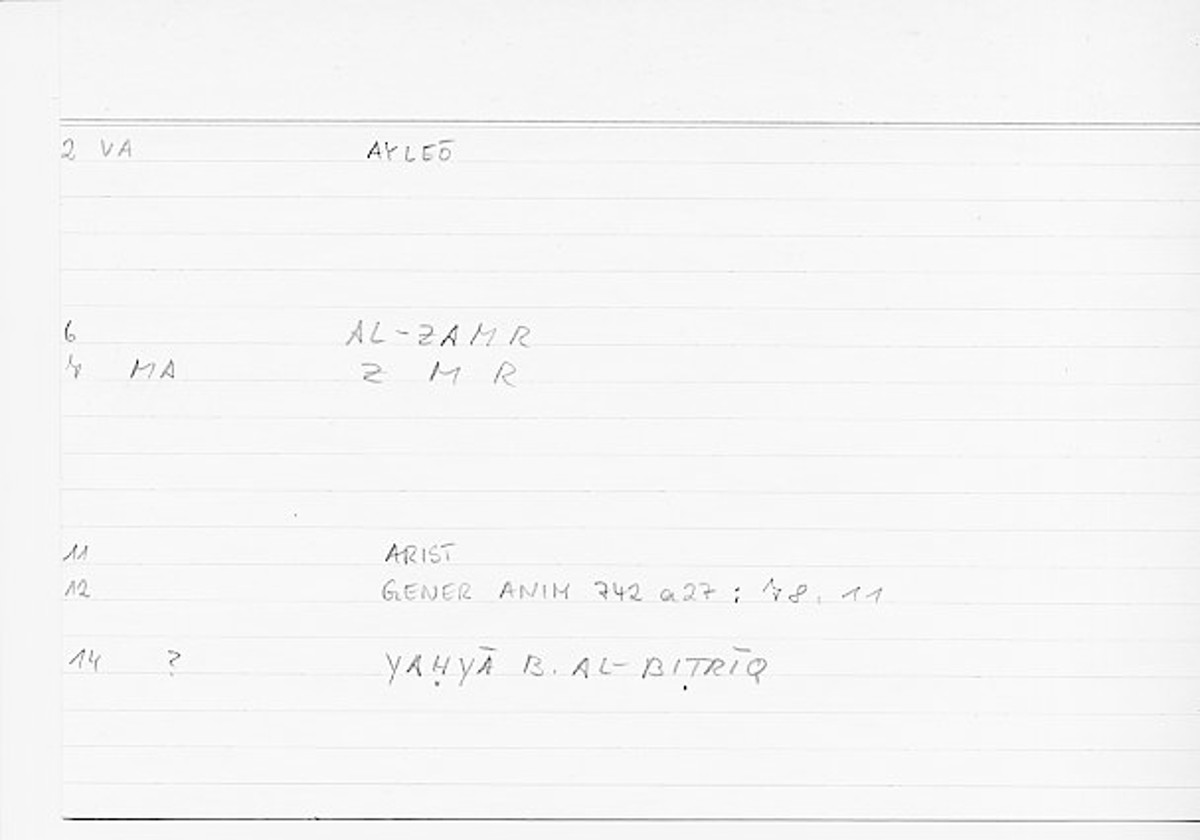 2 VA AYLEŌ
6 AL-ZAMR
MA Z M R
11 ARIST
12 GENER ANIM 742 a27 : 78. 11
14 ? YAḤYĀ B. AL-BIṬRĪQ